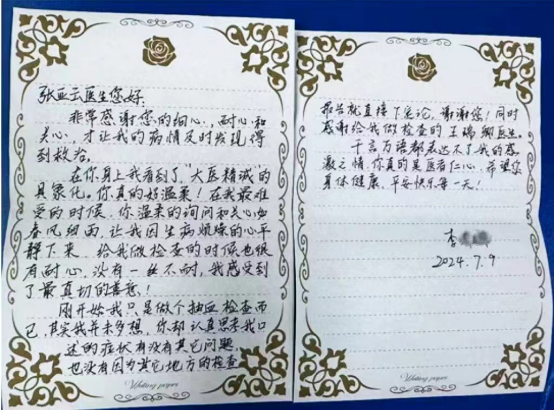 张亚云医生您好:
非常感谢您的细心,耐心和
关心,才让我的病情及时发现得
到救治。
在你身上我看到了大医精诚的
具象化。你真的好温柔!在我最难
受的时候,你温柔的询问和关心如
春风细雨,让我因生病烦燥的心平
静下来,给我做检查的时候也很
有耐心,没有一丝不耐,我感受到
了最真切的善意!
刚开始我只是做个抽血检查而
已,其实我并未多想,你却认真思考我口
述的症状有没有其它问题,
也没有因为其它地方的检查
Writing paper
报告就直接下定论,谢谢您!同时
感谢给我做检查的王瑞卿医生。
千言万语都表达不了我的感
激之情,你真的是医者仁心,希望您
身体健康,平安快乐每一天!
李
2024.7.9
Writing paper